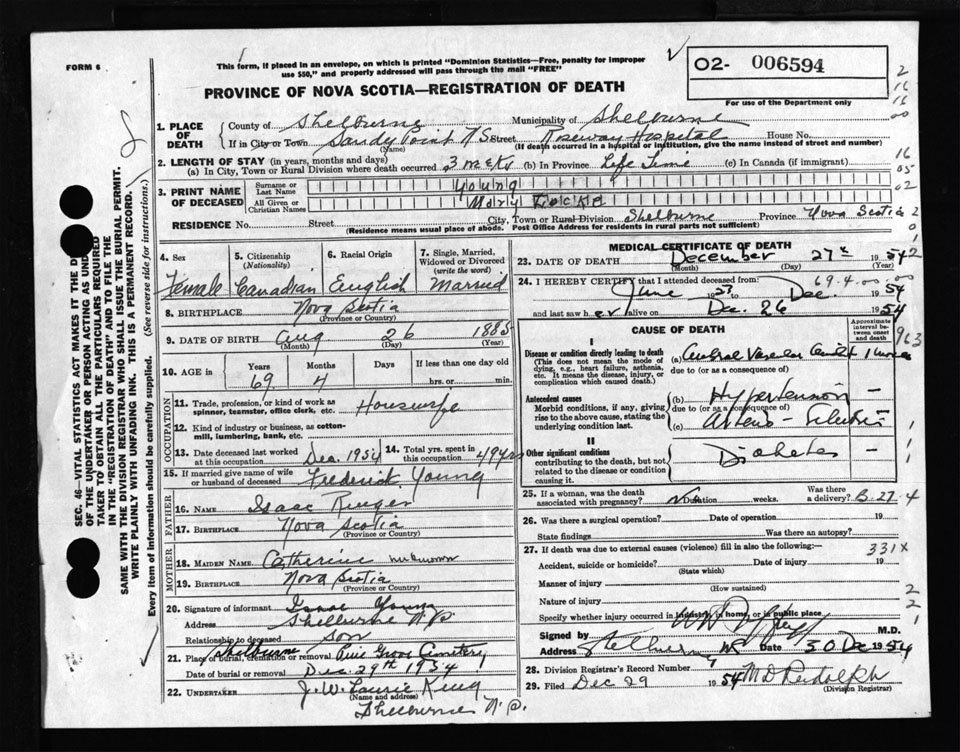 FORM 6
This form, if placed in an envelope, on which is printed "Dominion Statistics—Free, penalty for improper
use $50," and properly addressed will pass through the mail "FREE"
PROVINCE OF NOVA SCOTIA—REGISTRATION OF DEATH
O2- 006594
For use of the Department only
2
16
16
00
1. PLACE OF DEATH
County of Shelburne Municipality of Shelburne
If in City or Town Sandy Point N S Street Roseway Hospital House No.
(Name) (If death occurred in a hospital or institution, give the name instead of street and number)
2. LENGTH OF STAY (in years, months and days)
(a) In City, Town or Rural Division where death occurred 3 weeks (b) In Province Life Time (c) In Canada (if immigrant)
16
05
02
3. PRINT NAME OF DECEASED
Surname or Last Name Young
All Given or Christian Names Mary Locke
RESIDENCE No. Street City, Town or Rural Division Shelburne Province Nova Scotia
(Residence means usual place of abode. Post Office Address for residents in rural parts not sufficient)
SEC. 46—VITAL STATISTICS ACT MAKES IT THE
OF THE UNDERTAKER OR PERSON ACTING AS
TAKER TO OBTAIN ALL THE PARTICULARS REQUIRED
IN THE "REGISTRATION OF DEATH" AND TO FILE THE
SAME WITH THE DIVISION REGISTRAR WHO SHALL ISSUE THE BURIAL PERMIT.
WRITE PLAINLY WITH UNFADING INK. THIS IS A PERMANENT RECORD.
Every item of information should be carefully supplied. (See reverse side for instructions.)
4. Sex
Female
5. Citizenship
(Nationality)
Canadian
6. Racial Origin
English
7. Single, Married,
Widowed or Divorced
(write the word)
Married
8. BIRTHPLACE Nova Scotia
(Province or Country)
9. DATE OF BIRTH Aug 26 1885
(Month) (Day) (Year)
10. AGE in Years Months Days If less than one day old
69 4 hrs. or min.
OCCUPATION
11. Trade, profession, or kind of work as
spinner, teamster, office clerk, etc. Housewife
12. Kind of industry or business, as cotton-
mill, lumbering, bank, etc.
13. Date deceased last worked
at this occupation Dec. 1954
14. Total yrs. spent in
this occupation 49 yrs
15. If married give name of wife
or husband of deceased Frederick Young
FATHER
16. NAME Isaac Ringer
17. BIRTHPLACE Nova Scotia
(Province or Country)
MOTHER
18. MAIDEN NAME Catherine unknown
19. BIRTHPLACE Nova Scotia
(Province or Country)
20. Signature of informant Isaac Young
Address Shelburne N.S.
Relationship to deceased son
21. Place of burial, cremation or removal Shelburne Pine Grove Cemetery
Date of burial or removal Dec. 29th 1954
22. UNDERTAKER J. W. Laurie King
(Name and address)
Shelburne N.S.
MEDICAL CERTIFICATE OF DEATH
23. DATE OF DEATH December 27th 1954
(Month) (Day) (Year)
24. I HEREBY CERTIFY that I attended deceased from: 69.4.00
June 1927 to Dec. 1954
and last saw her alive on Dec. 26 1954
CAUSE OF DEATH
Approximate
interval be-
tween onset
and death
I
Disease or condition directly leading to death
(This does not mean the mode of
dying, e.g., heart failure, asthenia,
etc. It means the disease, injury, or
complication which caused death.)
(a)
due to (or as a consequence of)
Antecedent causes
Morbid conditions, if any, giving
rise to the above cause, stating the
underlying condition last.
(b) Hypertension —
due to (or as a consequence of)
(c) Arterio-
II
Other significant conditions
contributing to the death, but not
related to the disease or condition
causing it.
Diabetes —
963
25. If a woman, was the death
associated with pregnancy? No Duration weeks. Was there
a delivery? B-27-4
26. Was there a surgical operation? Date of operation 19
State findings Was there an autopsy?
27. If death was due to external causes (violence) fill in also the following:— 331X
Accident, suicide or homicide? Date of injury 19
(State which)
Manner of injury
(How sustained)
Nature of injury
Specify whether injury occurred in industry, in home, or in public place
Signed by M.D.
Address Shelburne NS Date 30 Dec 1954
28. Division Registrar's Record Number
29. Filed Dec 29 1954 M D Rudolph
(Division Registrar)